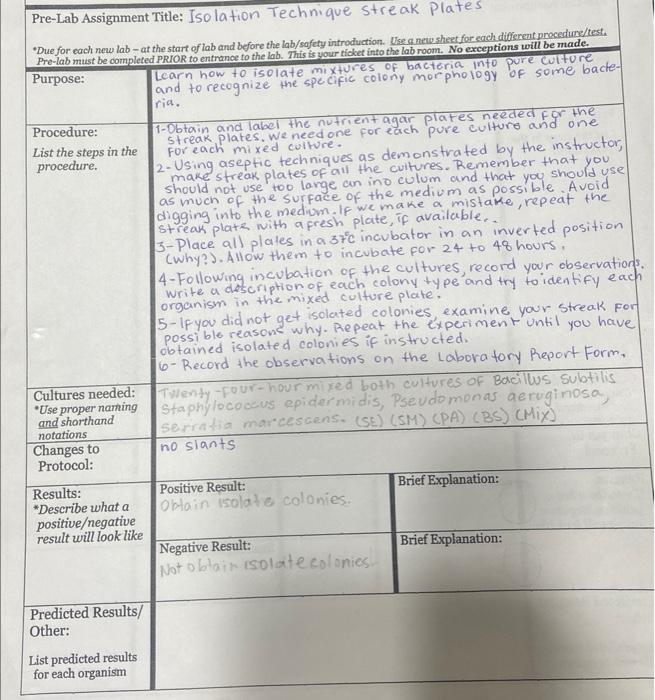 Pre-Lab Assignment Title: Isolation Technique Streak Plates
*Due for each new lab – at the start of lab and before the lab/safety introduction. Use a new sheet for each different procedure/test.
Pre-lab must be completed PRIOR to entrance to the lab. This is your ticket into the lab room. No exceptions will be made.
Purpose:
Learn how to isolate mixtures of bacteria into pure culture
and to recognize the specific colony morphology of some bacte-
ria.
Procedure:
List the steps in the
procedure.
1-Obtain and label the nutrient agar plates needed for the
streak plates. We need one for each pure culture and one
for each mixed culture.
2-Using aseptic techniques as demonstrated by the instructor,
make streak plates of all the cultures. Remember that you
should not use too large an inoculum and that you should use
as much of the surface of the medium as possible. Avoid
digging into the medium. If we make a mistake, repeat the
streak plate with a fresh plate, if available..
3-Place all plates in a 37°C incubator in an inverted position
(why?). Allow them to incubate for 24 to 48 hours.
4-Following incubation of the cultures, record your observations.
Write a description of each colony type and try to identify each
organism in the mixed culture plate.
5-If you did not get isolated colonies, examine your streak for
possible reasons why. Repeat the experiment until you have
obtained isolated colonies if instructed.
6- Record the observations on the Laboratory Report Form.
Cultures needed:
*Use proper naming
and shorthand
notations
Twenty-four-hour mixed both cultures of Bacillus subtilis
Staphylococcus epidermidis, Pseudomonas aeruginosa,
serratia marcescens. (SE) (SM) (PA) (BS) (Mix)
Changes to
Protocol:
no slants
Results:
*Describe what a
positive/negative
result will look like
Positive Result:
Obtain isolate colonies.
Brief Explanation:
Negative Result:
Not obtain isolate colonies
Brief Explanation:
Predicted Results/
Other:
List predicted results
for each organism